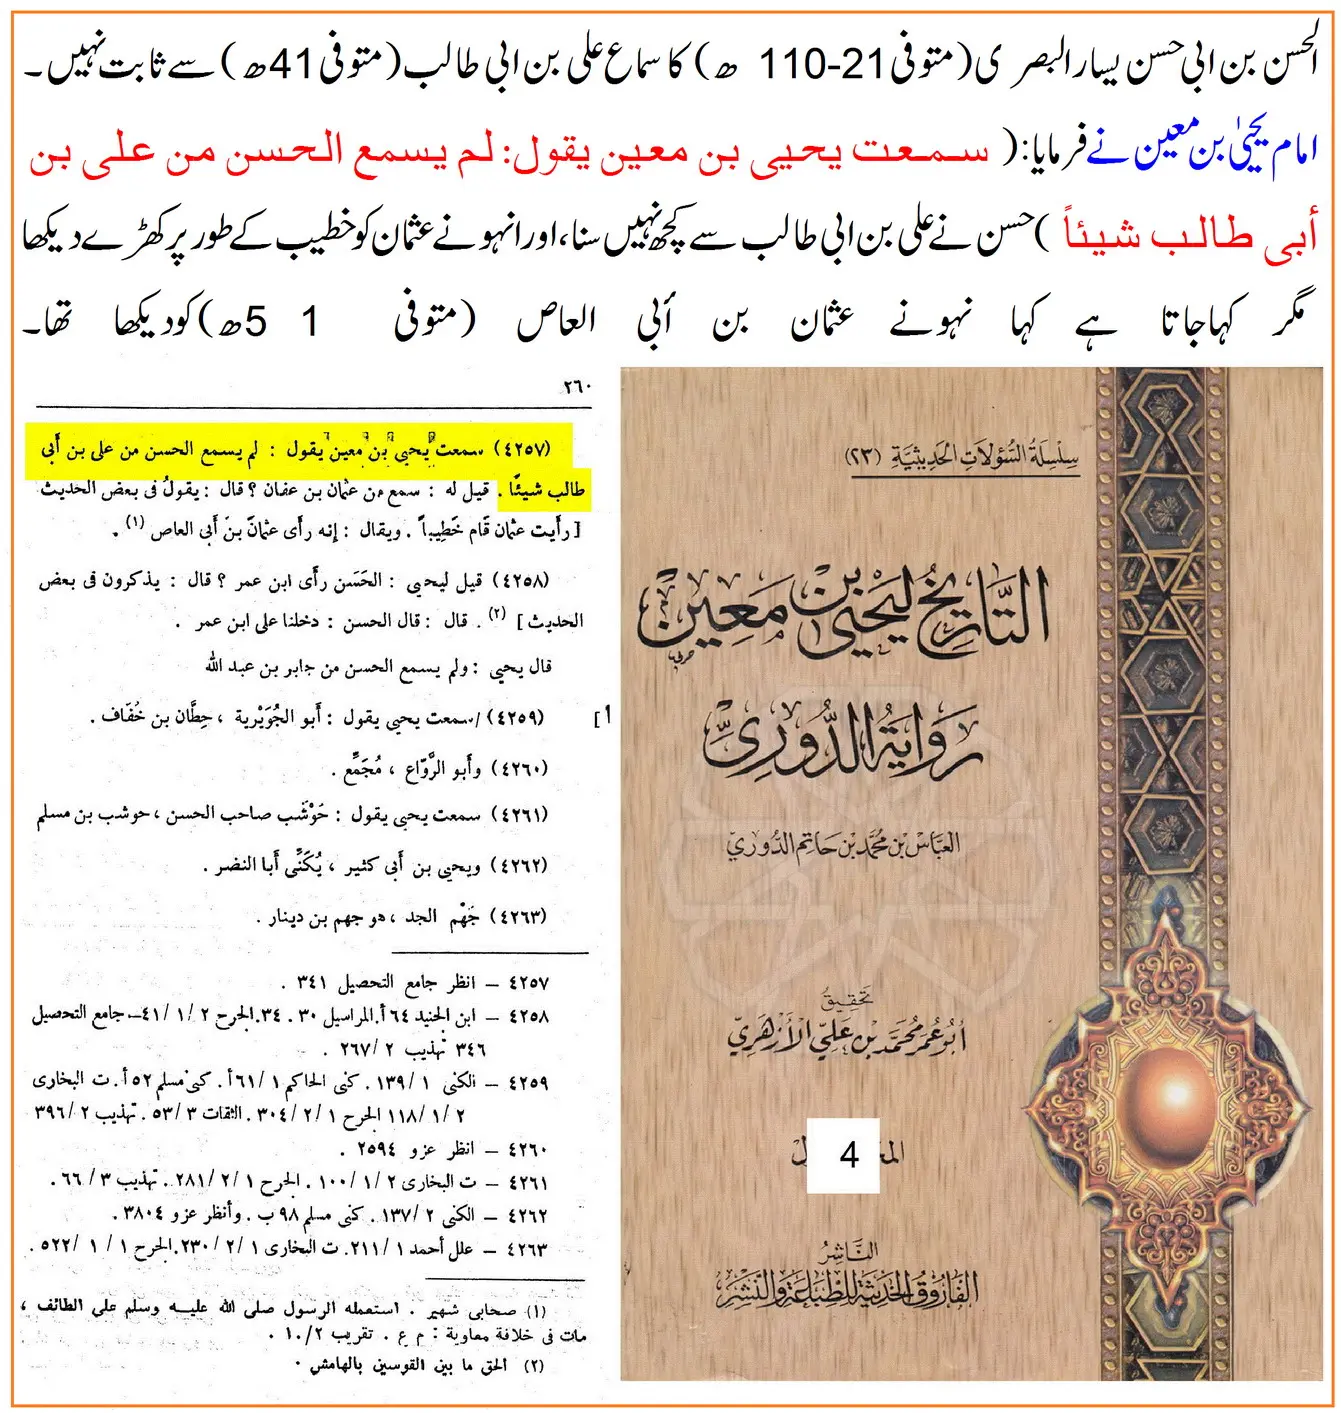 الحسن بن ابی حسن یسار البصری (متوفی 21-110 ھ) کا سماع علی بن ابی طالب (متوفی 41ھ) سے ثابت نہیں۔
امام یحییٰ بن معین نے فرمایا: ( سمعت يحيى بن معين يقول: لم يسمع الحسن من على بن
أبى طالب شيئاً ) حسن نے علی بن ابی طالب سے کچھ نہیں سنا، اور انہو نے عثمان کو خطیب کے طور پر کھڑے دیکھا
مگر کہا جاتا ہے کہا نہونے عثمان بن أبی العاص (متوفی 1 5ھ) کو دیکھا تھا۔
٢٦٠
(٤٢٥٧) سمعت يحيى بن معين يقول : لم يسمع الحسن من على بن أبى
طالب شيئًا . قيل له : سمع من عثمان بن عفان ؟ قال : يقولُ فى بعض الحديث
[ رأيت عثمان قام خَطِيباً . ويقال : إنه رأى عثمانَ بنَ أبى العاص (١) .
(٤٢٥٨) قيل ليحيى : الحَسَن رأى ابن عمر ؟ قال : يذكرون فى بعض
الحديث ] (٢) . قال : قال الحسن : دخلنا على ابن عمر .
قال يحيى : ولم يسمع الحسن من جابر بن عبد الله
أ] (٤٢٥٩) /سمعت يحيى يقول : أبو الجُوَيْرية ، حِطَّان بن خُفَاف .
(٤٢٦٠) وأبو الرَّوّاع ، مُجَمِّع .
(٤٢٦١) سمعت يحيى يقول : حَوْشَب صاحب الحسن ، حوشب بن مسلم
(٤٢٦٢) ويحيى بن أبى كثير ، يُكَنَّى أبا النضر .
(٤٢٦٣) جَهْم الجد ، هو جهم بن دينار .
٤٢٥٧ – انظر جامع التحصيل ٣٤١ .
٤٢٥٨ – ابن الجنيد ٦٤ أ. المراسيل ٣٠ . ٣٤. الجرح ٢ / ١ / ٤١ – جامع التحصيل
٣٤٦ تهذيب ٢ / ٢٦٧ .
٤٢٥٩ – الكنى ١ / ١٣٩ . كنى الحاكم ١ / ٦١ أ . كنى مسلم ٥٢ أ . ت البخارى
٢ / ١ / ١١٨ الجرح ١ / ٢ / ٣٠٤ . الثقات ٣ / ٥٣ . تهذيب ٢ / ٣٩٦
٤٢٦٠ – انظر عزو ٢٥٩٤ .
٤٢٦١ – ت البخارى ٢ / ١ / ١٠٠ . الجرح ١ / ٢ / ٢٨١ . تهذيب ٣ / ٦٦ .
٤٢٦٢ – الكنى ٢ / ١٣٧ . كنى مسلم ٩٨ ب . وأنظر عزو ٣٨٠٤ .
٤٢٦٣ – علل أحمد ١ / ٢١١ . ت البخارى ١ / ٢ / ٢٣٠ . الجرح ١ / ١ / ٥٢٢ .
(١) صحابى شهير . استعمله الرسول صلى الله عليه وسلم على الطائف ،
مات فى خلافة معاوية : م ع . تقريب ٢ / ١٠ .
(٢) الحق ما بين القوسين بالهامش .
سِلْسِلَةُ السُّؤَلَاتِ الحَدِيثِيَّةِ (٢٣)
التَّارِيخُ لِيَحْيَىٰ بْنِ مَعِينٍ
رِوَايَةُ الدُّورِيِّ
العَبَّاسِ بْنِ مُحَمَّدِ بْنِ حَاتِمِ الدُّورِيِّ
تَحْقِيقُ
أَبُو عُمَر مُحَمَّد بْن عَلِيّ الأَزْهَرِيّ
4
النَّاشِرُ
الفَارُوقُ الحَدِيثَةُ لِلطِّبَاعَةِ وَالنَّشْرِ